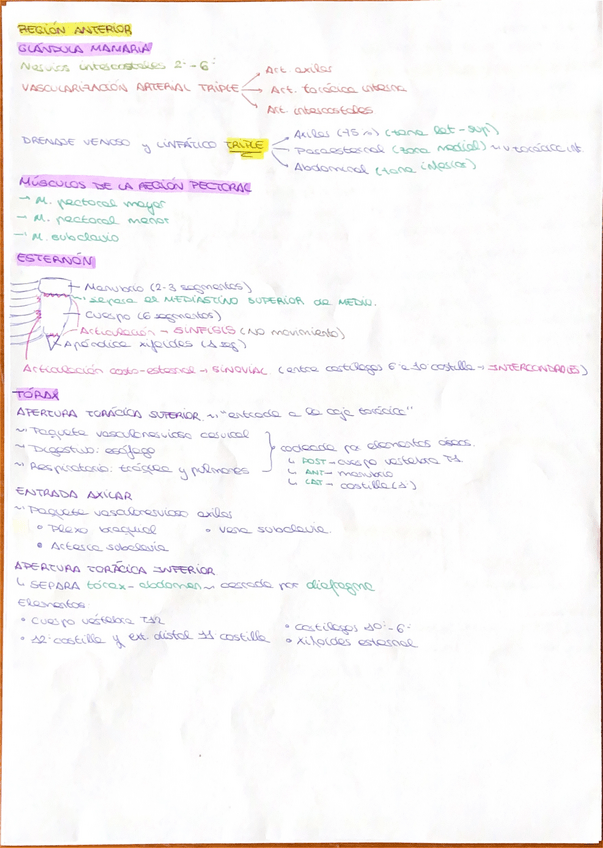 REGIÓN ANTERIOR
GLÁNDULA MAMARIA
Nervios intercostales 2º-6º
VASCULARIZACIÓN ARTERIAL TRIPLE
→ Art. axilar
→ Art. torácica interna
→ Art. intercostales
DRENAJE VENOSO y LINFÁTICO TRIPLE
→ Axilar (75%) (zona lat-sup)
→ Paraesternal (zona medial) ~ v. torácica int.
→ Abdominal (zona inferior)
MÚSCULOS DE LA REGIÓN PECTORAL
→ M. pectoral mayor
→ M. pectoral menor
→ M. subclavio
ESTERNÓN
Manubrio (2-3 segmentos)
separa el MEDIASTINO SUPERIOR de MEDIO.
Cuerpo (6 segmentos)
Articulación → SÍNFISIS (NO movimiento)
Apéndice xifoides (1 seg)
Articulación costo-esternal → SINOVIAL (entre cartílagos 6 a 10 costilla → INTERCONDRALES)
TÓRAX
APERTURA TORÁCICA SUPERIOR ~ "entrada a la caja torácica"
~ Paquete vasculonervioso cervical
~ Digestivo: esófago
~ Respiratorio: tráquea y pulmones
rodeada por elementos óseos.
↳ POST → cuerpo vértebra T1
↳ ANT → manubrio
↳ LAT → costilla (1)
ENTRADA AXILAR
~ Paquete vasculonervioso axilar
• Plexo braquial
• Vena subclavia.
• Arteria subclavia
APERTURA TORÁCICA INFERIOR
↳ SEPARA tórax-abdomen ~ cerrada por diafragma
Elementos:
• Cuerpo vértebra T12
• 12º costilla y ext. distal 11 costilla
• Cartílagos 10º-6º
• Xifoides esternal